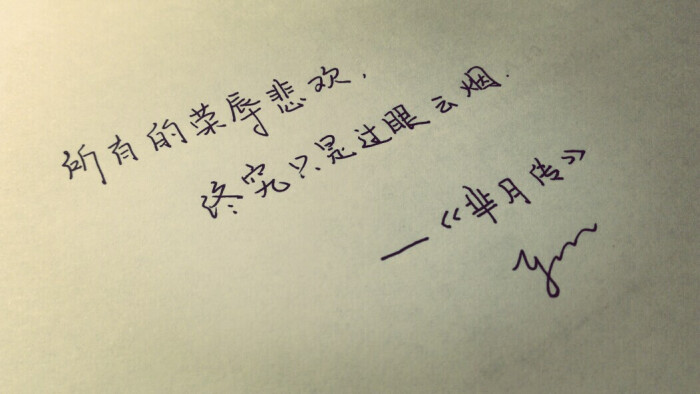 所有的荣辱悲欢,
终究只是过眼云烟.
—《芈月传》